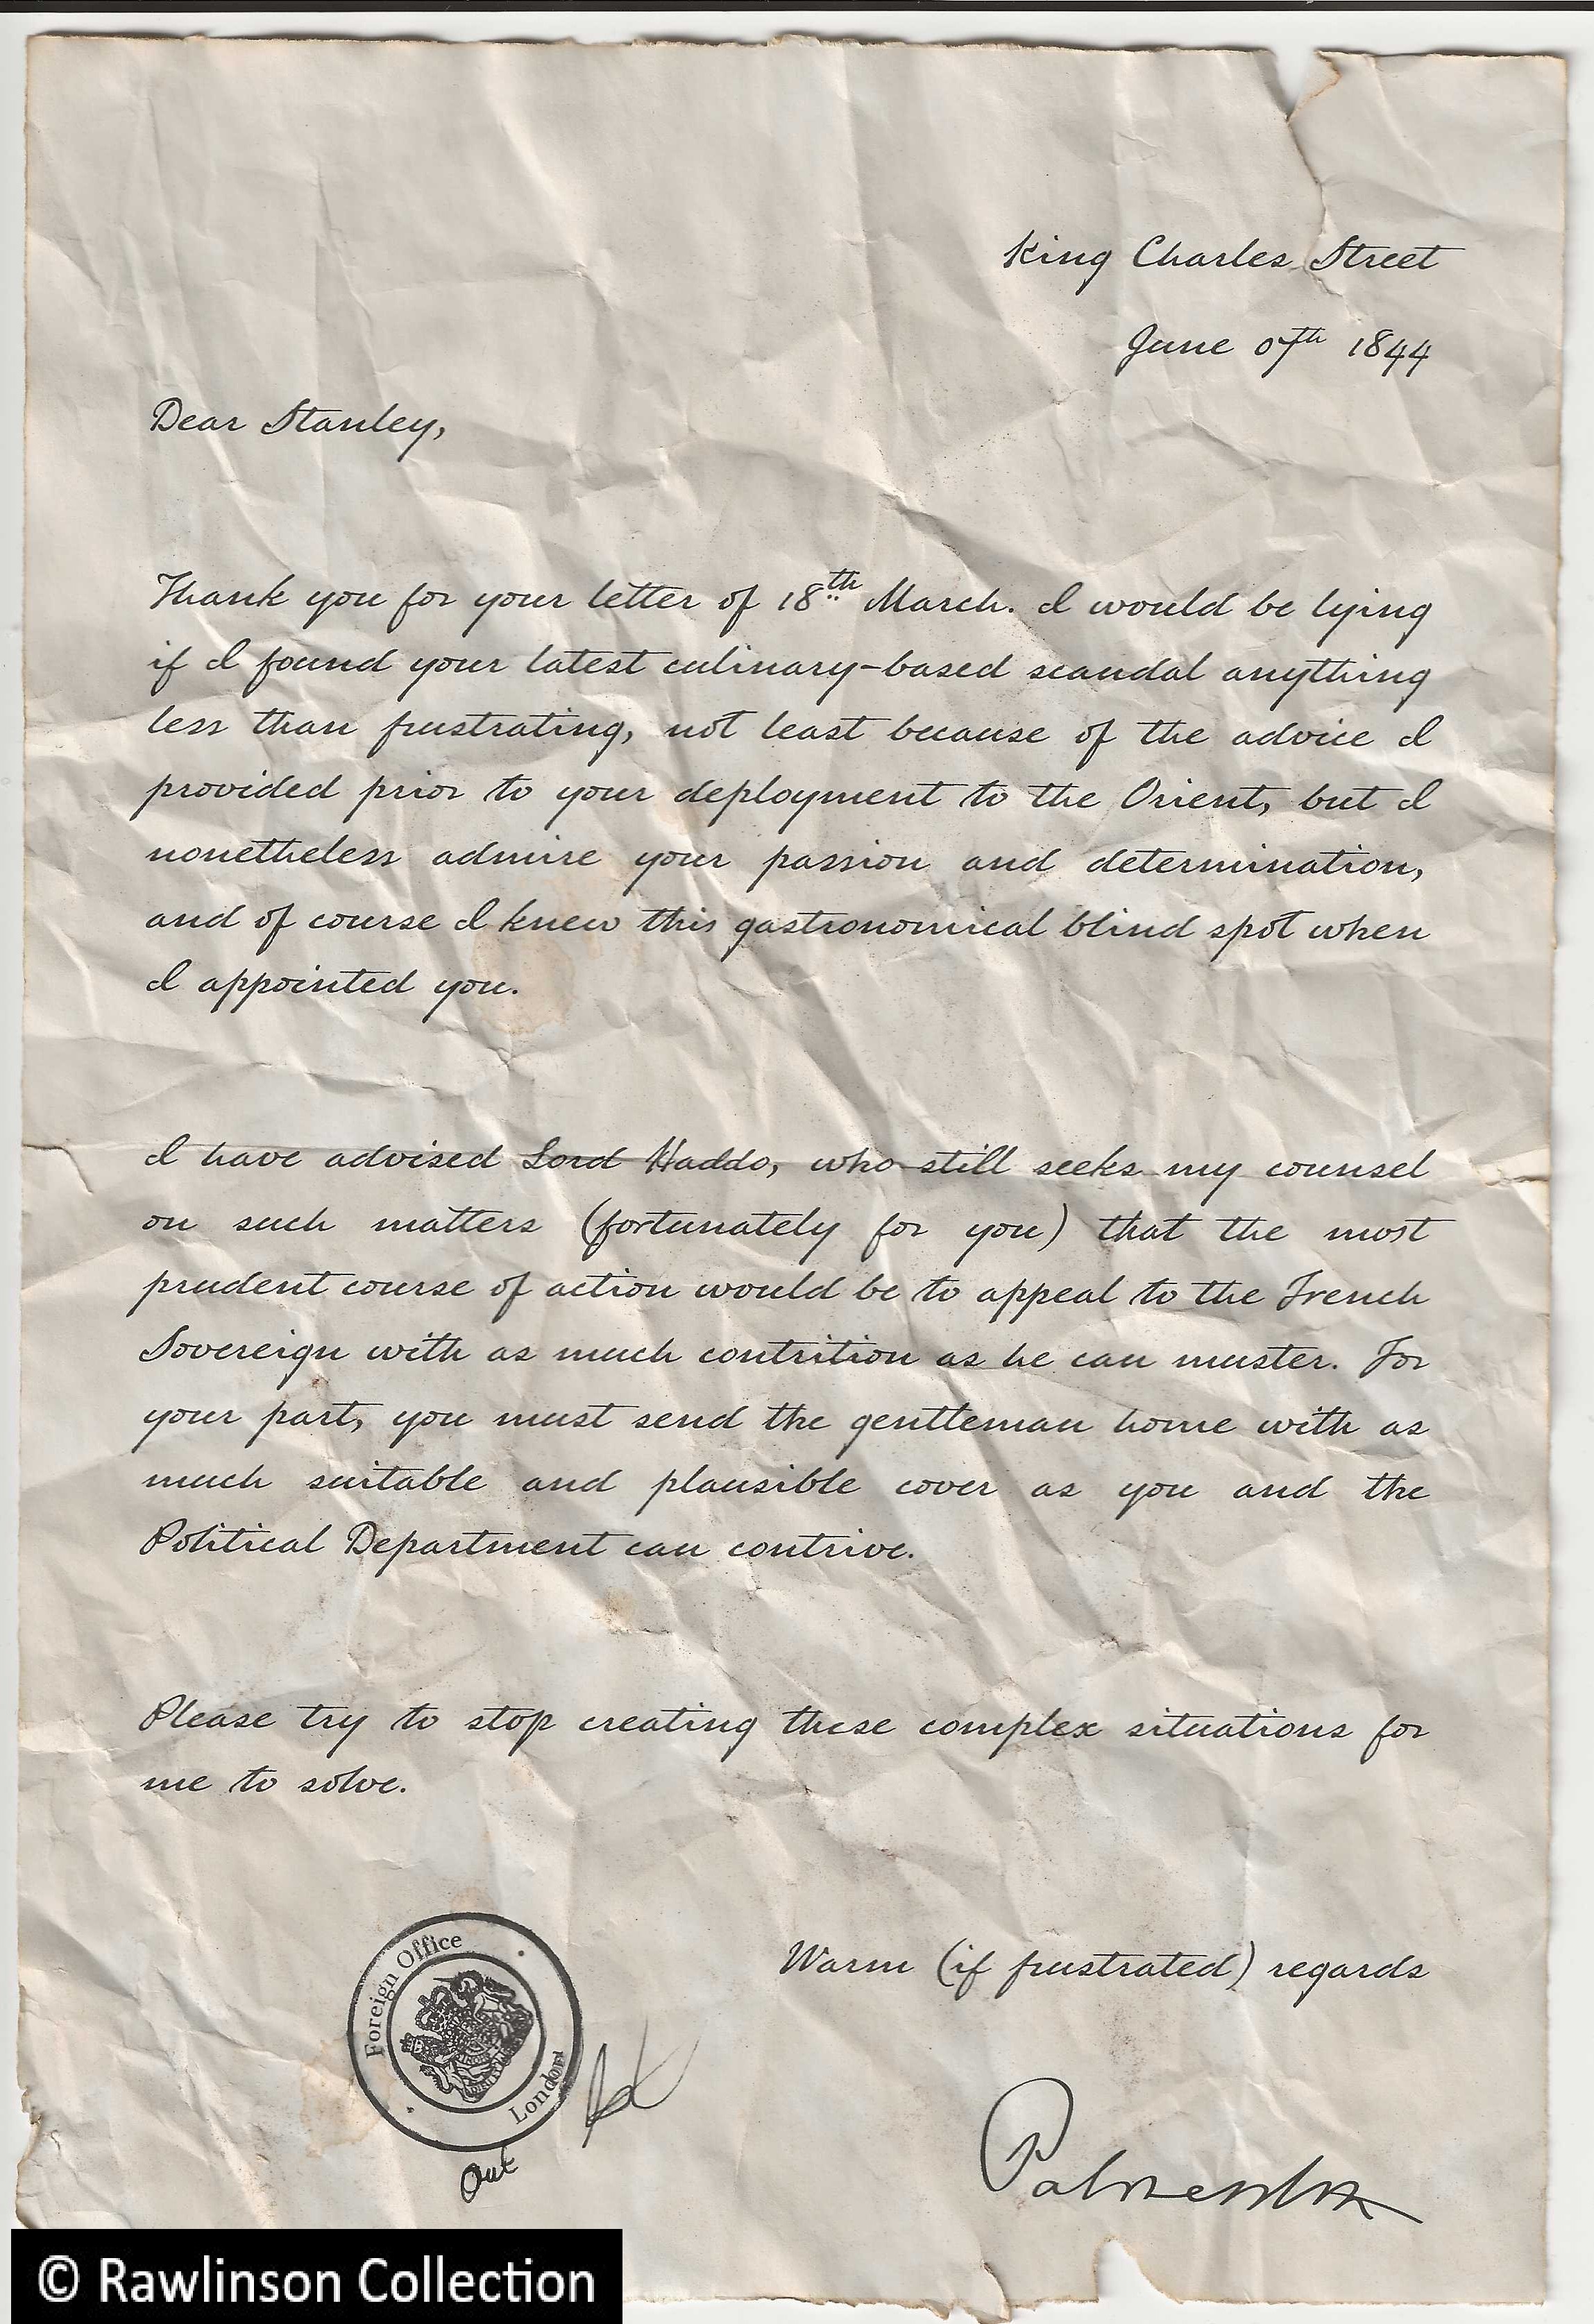 King Charles Street
June 07th 1844
Dear Stanley,
Thank you for your letter of 18th March. I would be lying
if I found your latest culinary-based scandal anything
less than frustrating, not least because of the advice I
provided prior to your deployment to the Orient, but I
nonetheless admire your passion and determination,
and of course I knew this gastronomical blind spot when
I appointed you.
I have advised Lord Haddo, who still seeks my counsel
on such matters (fortunately for you) that the most
prudent course of action would be to appeal to the French
Sovereign with as much contrition as he can muster. For
your part, you must send the gentleman home with as
much suitable and plausible cover as you and the
Political Department can contrive.
Please try to stop creating these complex situations for
me to solve.
Warm (if frustrated) regards
Foreign Office
London
Out
Palmerston
© Rawlinson Collection